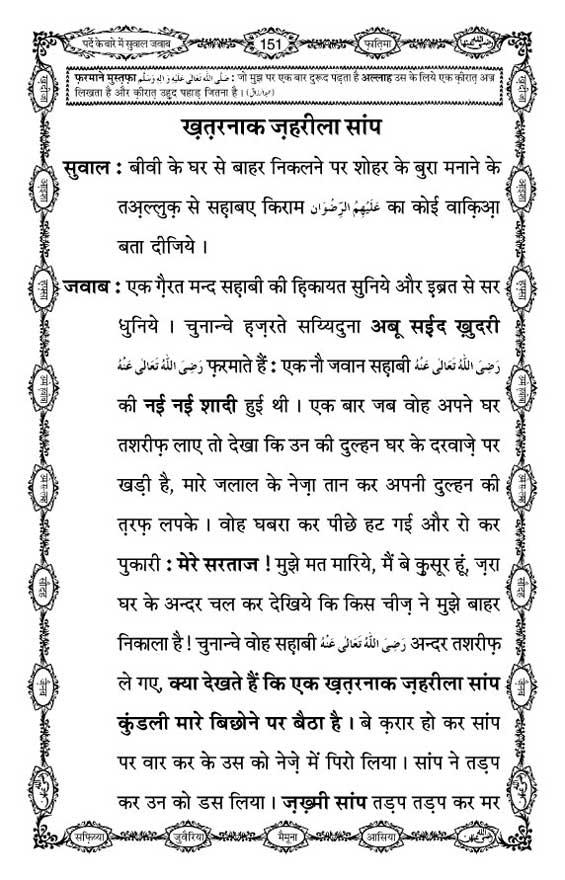 पर्दे के बारे में सुवाल जवाब 151 फ़ातिमा
फ़रमाने मुस्तफ़ा صَلَّى اللهُ تَعَالٰى عَلَيْهِ وَاٰلِهٖ وَسَلَّم : जो मुझ पर एक बार दुरूद पढ़ता है अल्लाह उस के लिये एक क़ीरात़ अज्र
लिखता है और क़ीरात़ उहुद पहाड़ जितना है ।
ख़त़रनाक ज़हरीला सांप
सुवाल : बीवी के घर से बाहर निकलने पर शोहर के बुरा मनाने के
तअ़ल्लुक़ से सह़ाबए किराम عَلَيْهِمُ الرِّضْوَان का कोई वाक़िआ़
बता दीजिये ।
जवाब : एक ग़ैरत मन्द सह़ाबी की ह़िकायत सुनिये और इ़ब्रत से सर
धुनिये । चुनान्चे ह़ज़रते सय्यिदुना अबू सई़द ख़ुदरी
رَضِىَ اللهُ تَعَالٰى عَنْهُ फ़रमाते हैं : एक नौ जवान सह़ाबी رَضِىَ اللهُ تَعَالٰى عَنْهُ
की नई नई शादी हुई थी । एक बार जब वोह अपने घर
तशरीफ़ लाए तो देखा कि उन की दुल्हन घर के दरवाज़े पर
खड़ी है, मारे जलाल के नेज़ा तान कर अपनी दुल्हन की
त़रफ़ लपके । वोह घबरा कर पीछे हट गई और रो कर
पुकारी : मेरे सरताज ! मुझे मत मारिये, मैं बे क़ुसूर हूं, ज़रा
घर के अन्दर चल कर देखिये कि किस चीज़ ने मुझे बाहर
निकाला है ! चुनान्चे वोह सह़ाबी رَضِىَ اللهُ تَعَالٰى عَنْهُ अन्दर तशरीफ़
ले गए, क्या देखते हैं कि एक ख़त़रनाक ज़हरीला सांप
कुंडली मारे बिछोने पर बैठा है । बे क़रार हो कर सांप
पर वार कर के उस को नेज़े में पिरो लिया । सांप ने तड़प
कर उन को डस लिया । ज़ख़्मी सांप तड़प तड़प कर मर
सफ़िय्या जुवैरिया मैमूना आसिया